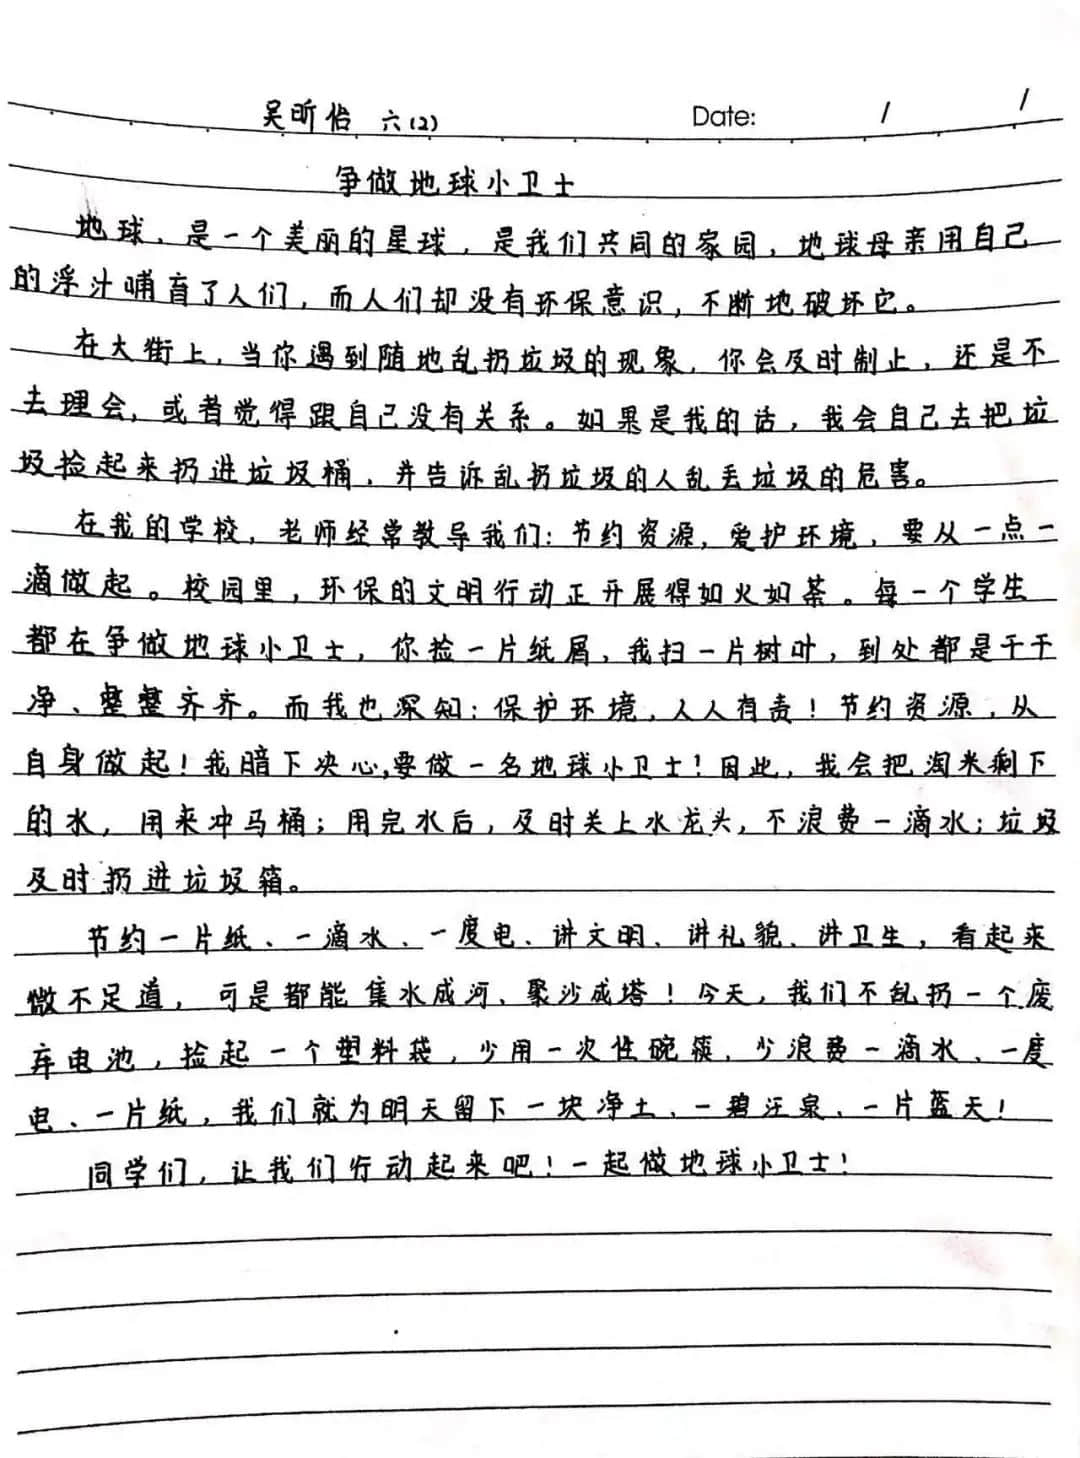 吴昕怡 六(2)
Date: / /
争做地球小卫士
地球，是一个美丽的星球，是我们共同的家园，地球母亲用自己
的浮汁哺育了人们，而人们却没有环保意识，不断地破坏它。
在大街上，当你遇到随地乱扔垃圾的现象，你会及时制止，还是不
去理会，或者觉得跟自己没有关系。如果是我的话，我会自己去把垃
圾捡起来扔进垃圾桶，并告诉乱扔垃圾的人乱丢垃圾的危害。
在我的学校，老师经常教导我们：节约资源，爱护环境，要从一点一
滴做起。校园里，环保的文明行动正开展得如火如荼。每一个学生
都在争做地球小卫士，你捡一片纸屑，我扫一片树叶，到处都是干干
净、整整齐齐。而我也深知：保护环境，人人有责！节约资源，从
自身做起！我暗下决心，要做一名地球小卫士！因此，我会把淘米剩下
的水，用来冲马桶；用完水后，及时关上水龙头，不浪费一滴水；垃圾
及时扔进垃圾箱。
节约一片纸、一滴水、一度电、讲文明、讲礼貌、讲卫生，看起来
微不足道，可是都能集水成河、聚沙成塔！今天，我们不乱扔一个废
弃电池，捡起一个塑料袋，少用一次性碗筷，少浪费一滴水、一度
电、一片纸，我们就为明天留下一块净土、一碧汪泉、一片蓝天！
同学们，让我们行动起来吧！一起做地球小卫士！